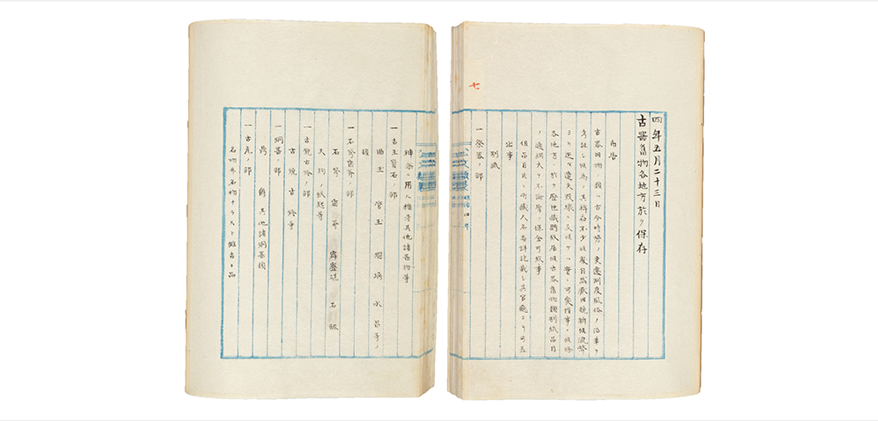 七
四年五月二十三日
古器舊物各地方ニ於テ保存
布告
古器舊物ノ類ハ古今時勢ノ變遷制度風俗ノ沿革ヲ
考証シ候為メ其裨益不少候處自然厭舊競新候流弊
ヨリ追々遺失毀壞ニ及候テハ實ニ可愛惜事ニ候條
各地方ニ於テ歴世蔵貯致居候古器舊物類別紙品目
ノ通細大ヲ不論厚ク保全可致事
但品目並ニ所蔵人名委詳記載シ其官廳ヨリ可差
出事
別紙
一祭器ノ部
神祭ニ用ル楯矛其他諸器物等
一古玉寳石ノ部
曲玉 管玉 瑠璃 水晶等ノ
類
一石弩雷斧ノ部
石弩 雷斧 霹靂碪 石劔
天狗ノ飯匙等
一古鏡古鈴ノ部
古鏡古鈴等
一銅器ノ部
鼎 爵 其他諸銅器類
一古瓦ノ部